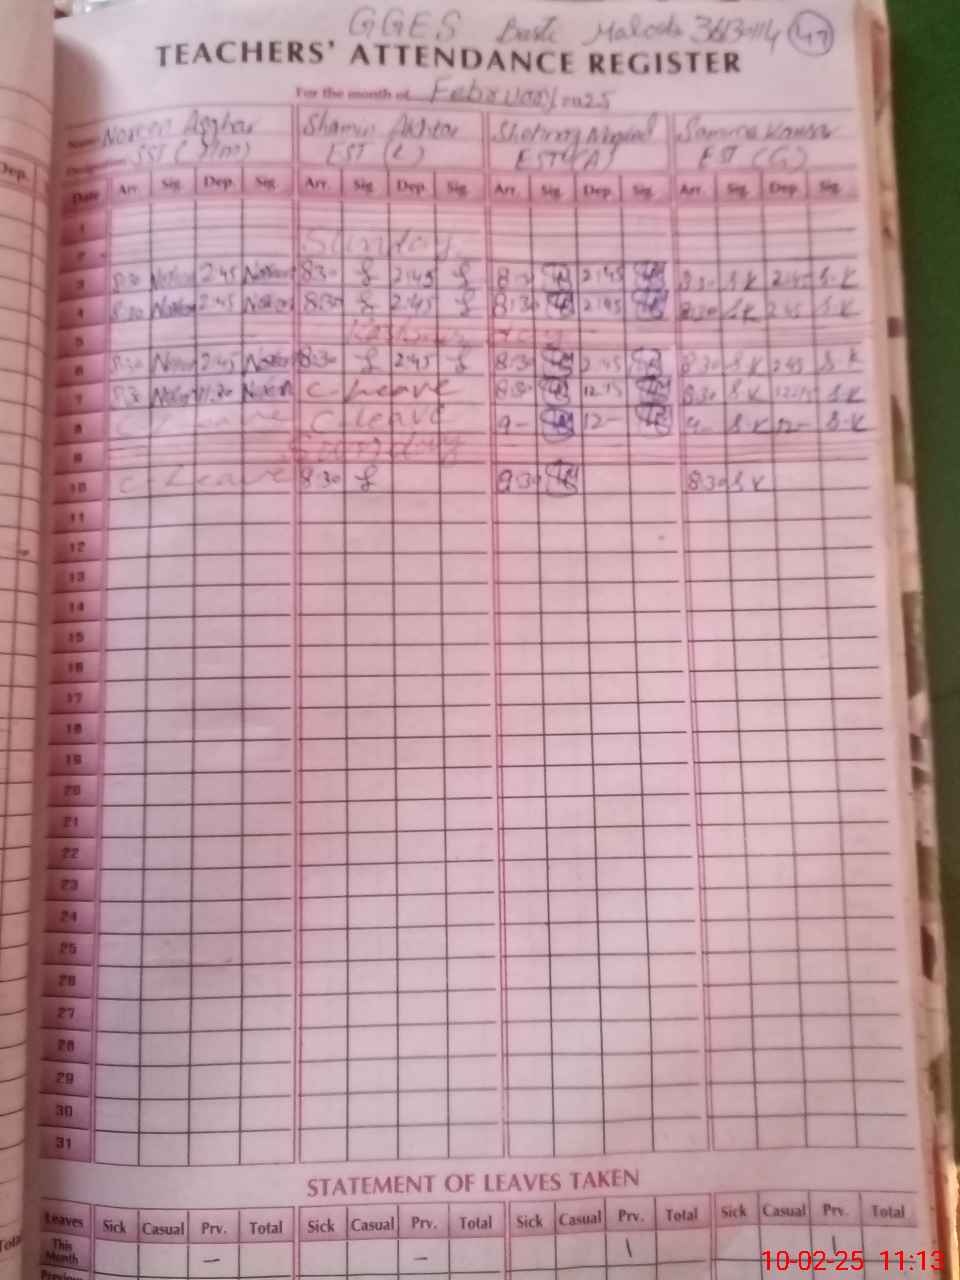 GGES Basti Malooka 36130114 47
TEACHERS' ATTENDANCE REGISTER
For the month of February 2025
Name Noreen Asghar Shamim Akhtar Samina Kausar
SST EST EST (A) EST (G)
Date Arr. Sig. Dep. Sig. Arr. Sig. Dep. Sig. Arr. Sig. Dep. Sig. Arr. Sig. Dep. Sig.
1
2 Sunday
3 8:30 Noreen 2:45 Noreen 8:30 2:45 8:30 2:45 8:30 S.K 2:45 S.K
4 8:30 Noreen 2:45 Noreen 8:30 2:45 8:30 2:45 8:30 S.K 2:45 S.K
5 Kashmir Day
6 8:30 Noreen 2:45 Noreen 8:30 2:45 8:30 2:45 8:30 S.K 2:45 S.K
7 8:30 Noreen Noreen C-Leave 8:30 12:15 8:30 S.K 12:15 S.K
8 C-Leave C-Leave 9- 12- 9- S.K 12- S.K
9 Sunday
10 C-Leave 8:30 8:30 8:30 S.K
11
12
13
14
15
16
17
18
19
20
21
22
23
24
25
26
27
28
29
30
31
STATEMENT OF LEAVES TAKEN
Leaves Sick Casual Prv. Total Sick Casual Prv. Total Sick Casual Prv. Total Sick Casual Prv. Total
This Month — — 1 1
Previous
10-02-25 11:13